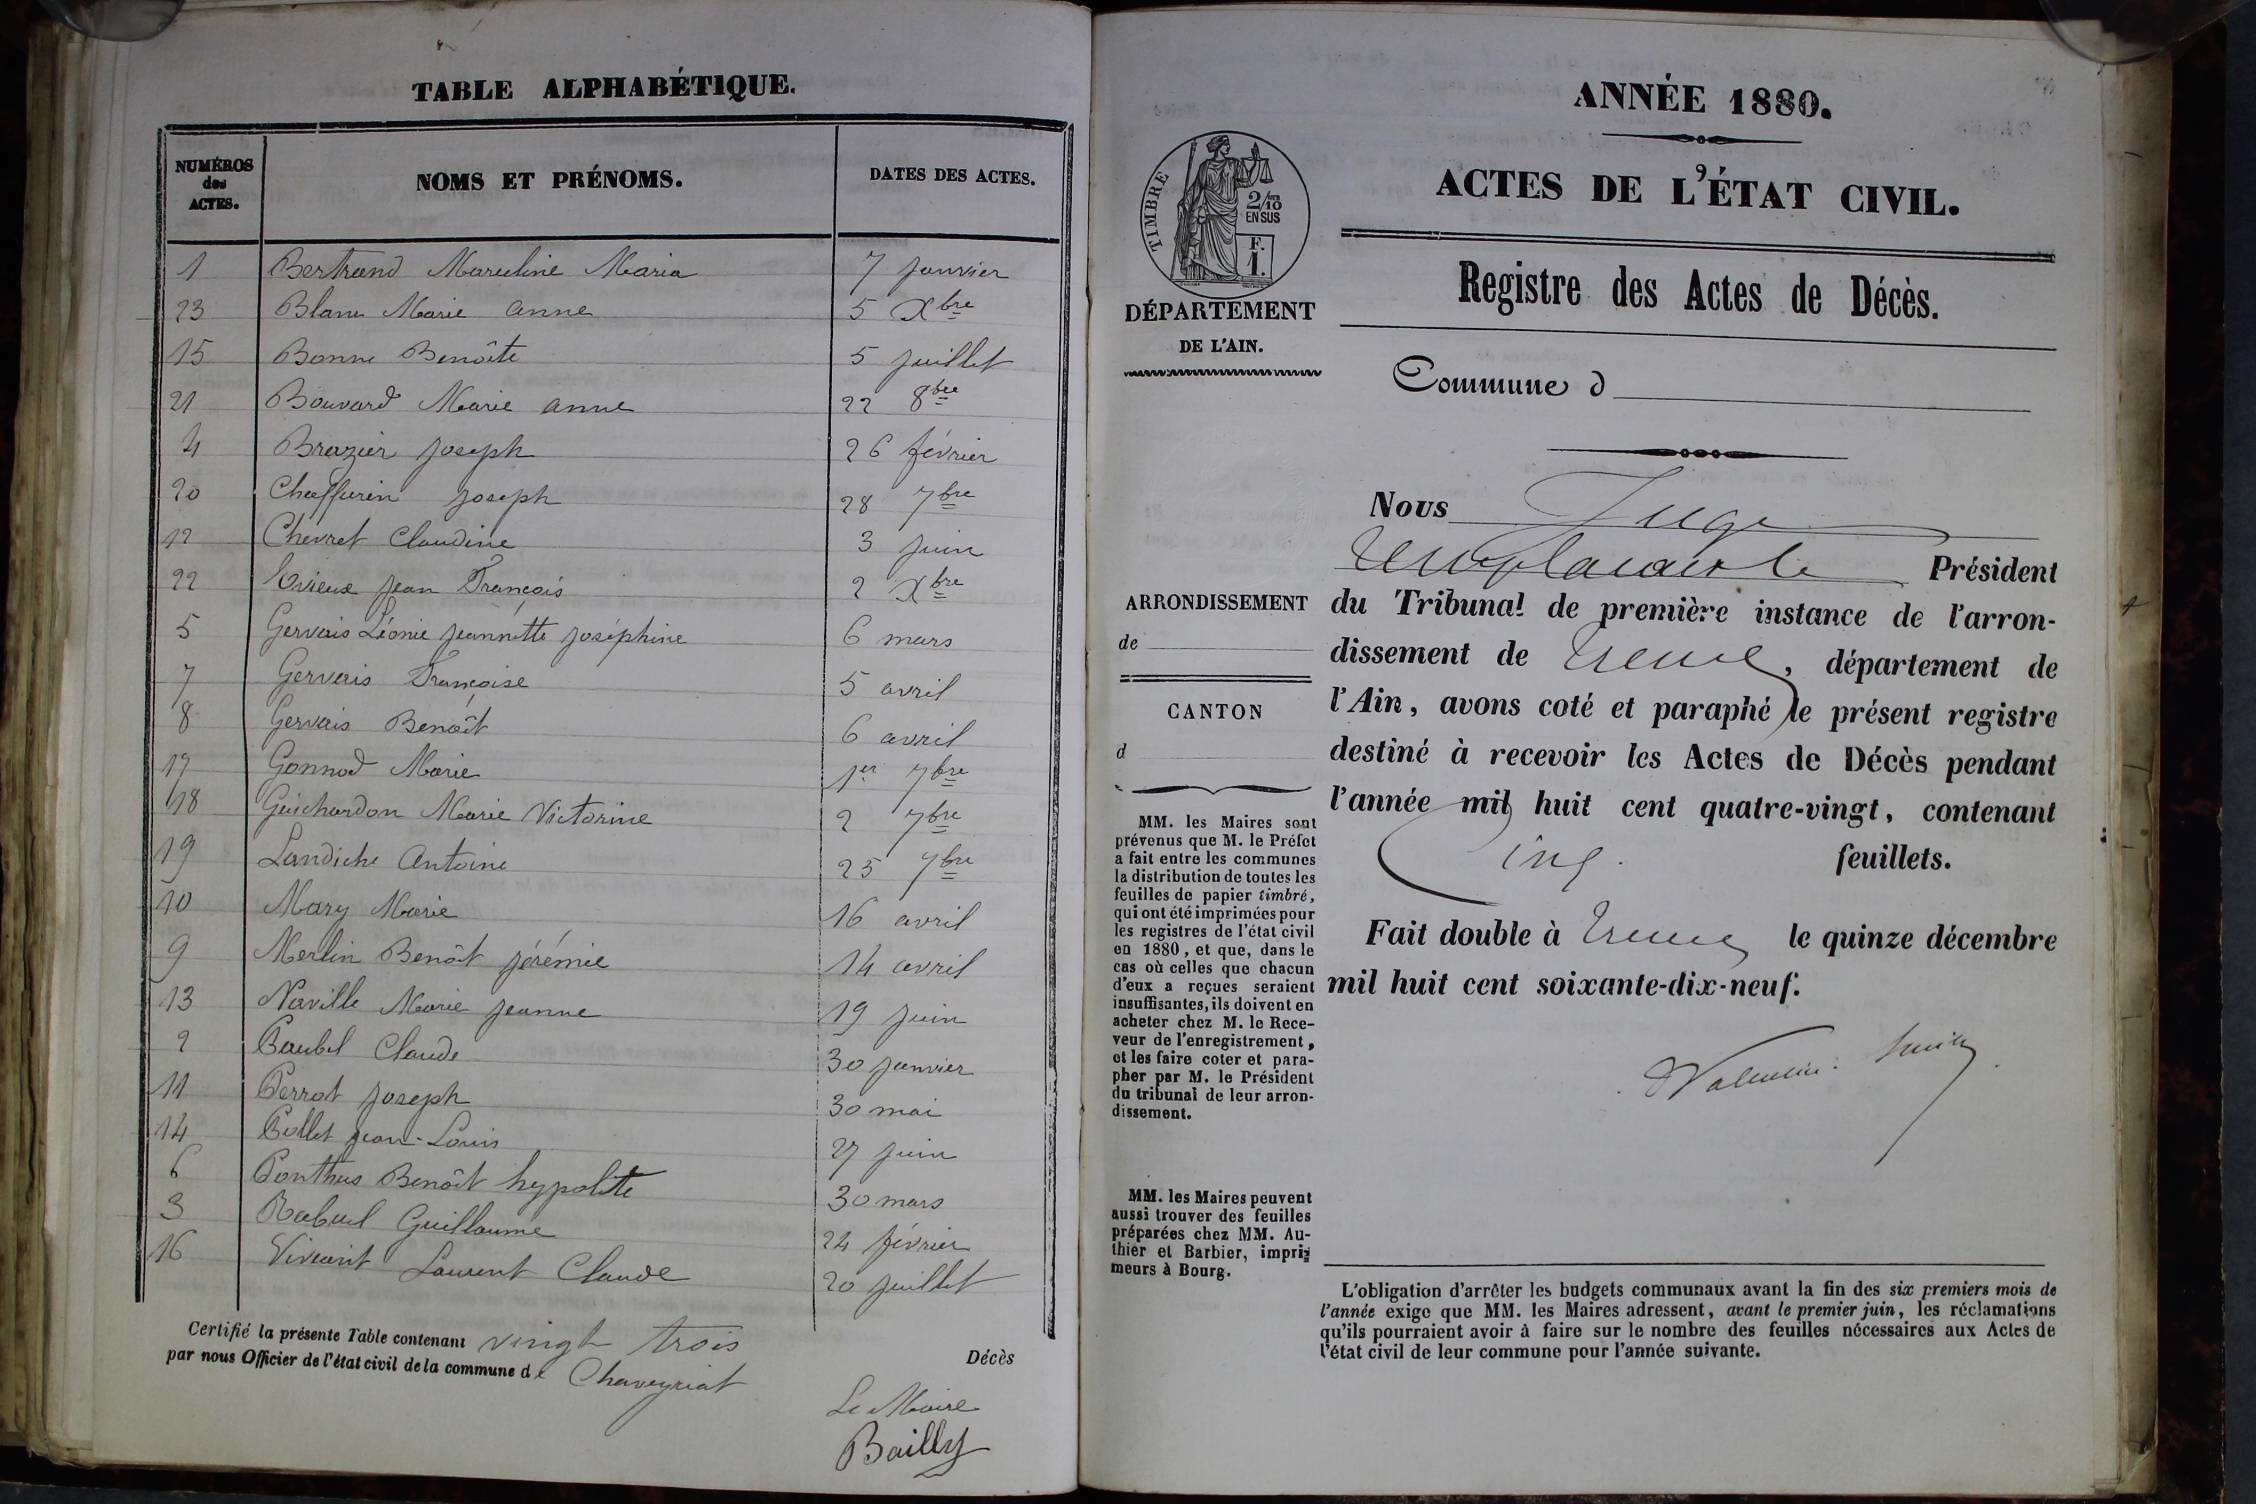 TABLE ALPHABÉTIQUE.
NUMÉROS des ACTES. NOMS ET PRÉNOMS. DATES DES ACTES.
1 Bertrand Marceline Maria 7 janvier
23 Blanc Marie Anne 5 Xbre
15 Bonne Benoîte 5 juillet
21 Bouvard Marie Anne 22 8bre
4 Brazier Joseph 26 février
20 Chaffurin Joseph 28 7bre
12 Chevret Claudine 3 juin
22 Evieux Jean François 2 Xbre
5 Gervais Léonie Jeannette Joséphine 6 mars
7 Gervais Françoise 5 avril
8 Gervais Benoît 6 avril
17 Gonnod Marie 1er 7bre
18 Guichardon Marie Victorine 2 7bre
19 Landiche Antoine 25 7bre
10 Mary Marie 16 avril
9 Merlin Benoît Jérémie 14 avril
13 Naville Marie Jeanne 19 juin
2 Paubel Claude 30 janvier
11 Perrot Joseph 30 mai
14 Pollet Jean-Louis 27 juin
6 Ponthus Benoît hypolite 30 mars
3 Rabuel Guillaume 24 février
16 Viviant Laurent Claude 20 juillet
Certifié la présente Table contenant vingt trois Décès
par nous Officier de l'état civil de la commune de Chaveyriat
Le Maire
Bailly
ANNÉE 1880.
ACTES DE L'ÉTAT CIVIL.
TIMBRE
2/10
EN SUS
F.
1.
DÉPARTEMENT
DE L'AIN.
Registre des Actes de Décès.
Commune d
Nous Juge
remplaçant le Président
du Tribunal de première instance de l'arron-
dissement de , département de
l'Ain, avons coté et paraphé le présent registre
destiné à recevoir les Actes de Décès pendant
l'année mil huit cent quatre-vingt, contenant
Cinq feuillets.
Fait double à le quinze décembre
mil huit cent soixante-dix-neuf.
Valentin Smith
ARRONDISSEMENT
de
CANTON
d
MM. les Maires sont
prévenus que M. le Préfet
a fait entre les communes
la distribution de toutes les
feuilles de papier timbré,
qui ont été imprimées pour
les registres de l'état civil
en 1880, et que, dans le
cas où celles que chacun
d'eux a reçues seraient
insuffisantes, ils doivent en
acheter chez M. le Rece-
veur de l'enregistrement,
et les faire coter et para-
pher par M. le Président
du tribunal de leur arron-
dissement.
MM. les Maires peuvent
aussi trouver des feuilles
préparées chez MM. Au-
thier et Barbier, impri-
meurs à Bourg.
L'obligation d'arrêter les budgets communaux avant la fin des six premiers mois de
l'année exige que MM. les Maires adressent, avant le premier juin, les réclamations
qu'ils pourraient avoir à faire sur le nombre des feuilles nécessaires aux Actes de
l'état civil de leur commune pour l'année suivante.